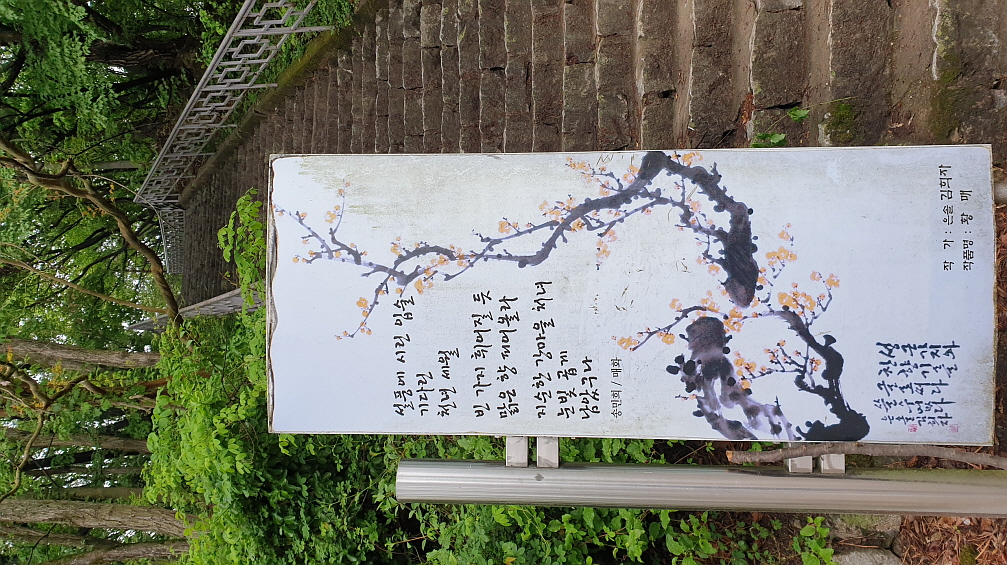 설풍에 시린 입술
기다린
천년 세월
빈 가지 휘어질 듯
맑은 향 피어올라
지순한 강마을 처녀
눈빛 곱게
남았구나
송민회 / 매화
작 가 : 은솔 김희자
작품명 : 황 매